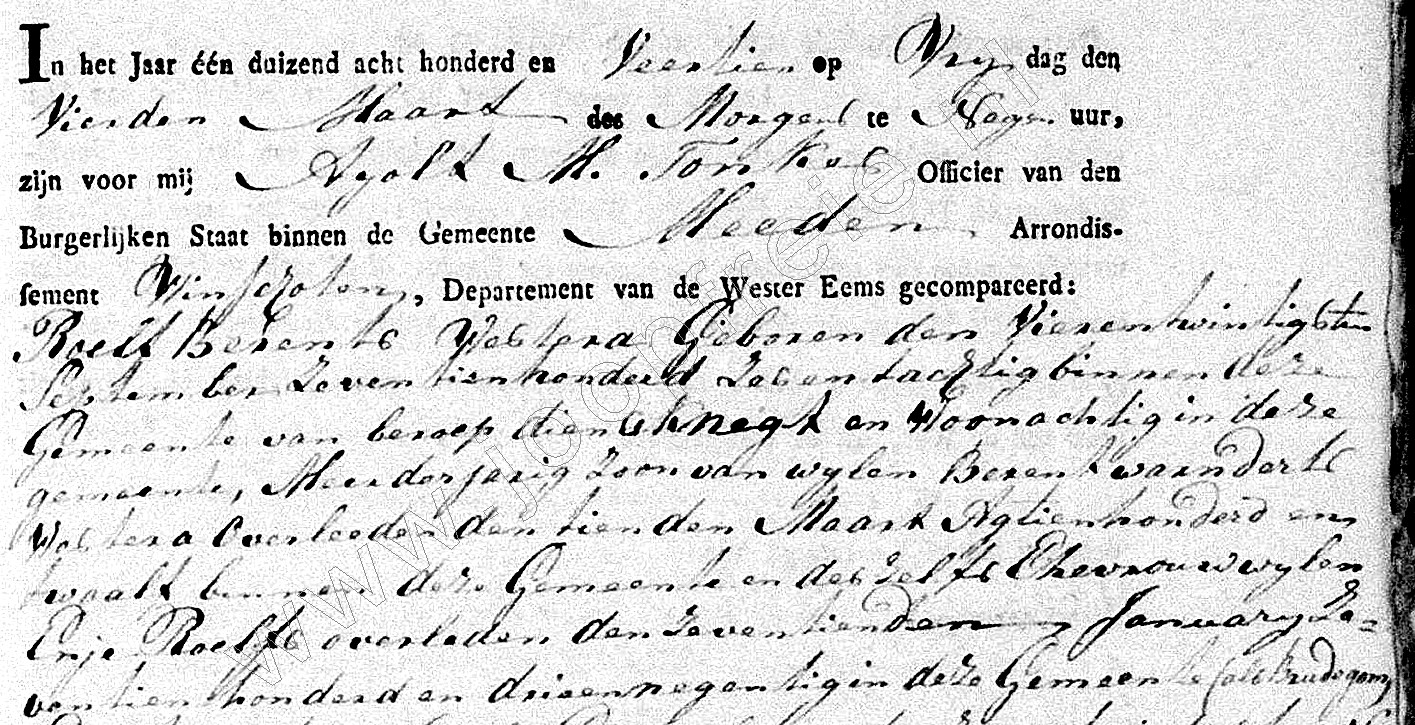 In het Jaar één duizend acht honderd en Veertien op Vry dag den
Vierden Maart des Morgens te Negen uur,
zijn voor mij M. Tonkes Officier van den
Burgerlijken Staat binnen de Gemeente Meeden Arrondis-
sement Winschoten, Departement van de Wester Eems gecompareerd:
Roelf Berents Westera Geboren den Vierentwintigsten
September Zeventienhonderd Zesentachtig binnen deze
Gemeente van beroep dienstknegt en Woonachtig in deze
gemeente, Meerderjarig Zoon van wylen Berent waanderts
Westera Overleeden den tienden Maart Agtienhonderd en
twaalf binnen deze Gemeente en deszelfs Ehevrouw wylen
Enje Roelfs overleden den Zeventienden January Ze=
ventienhonderd en drieennegentig in deze Gemeente (als bruidegom,
www.jconfreie.nl